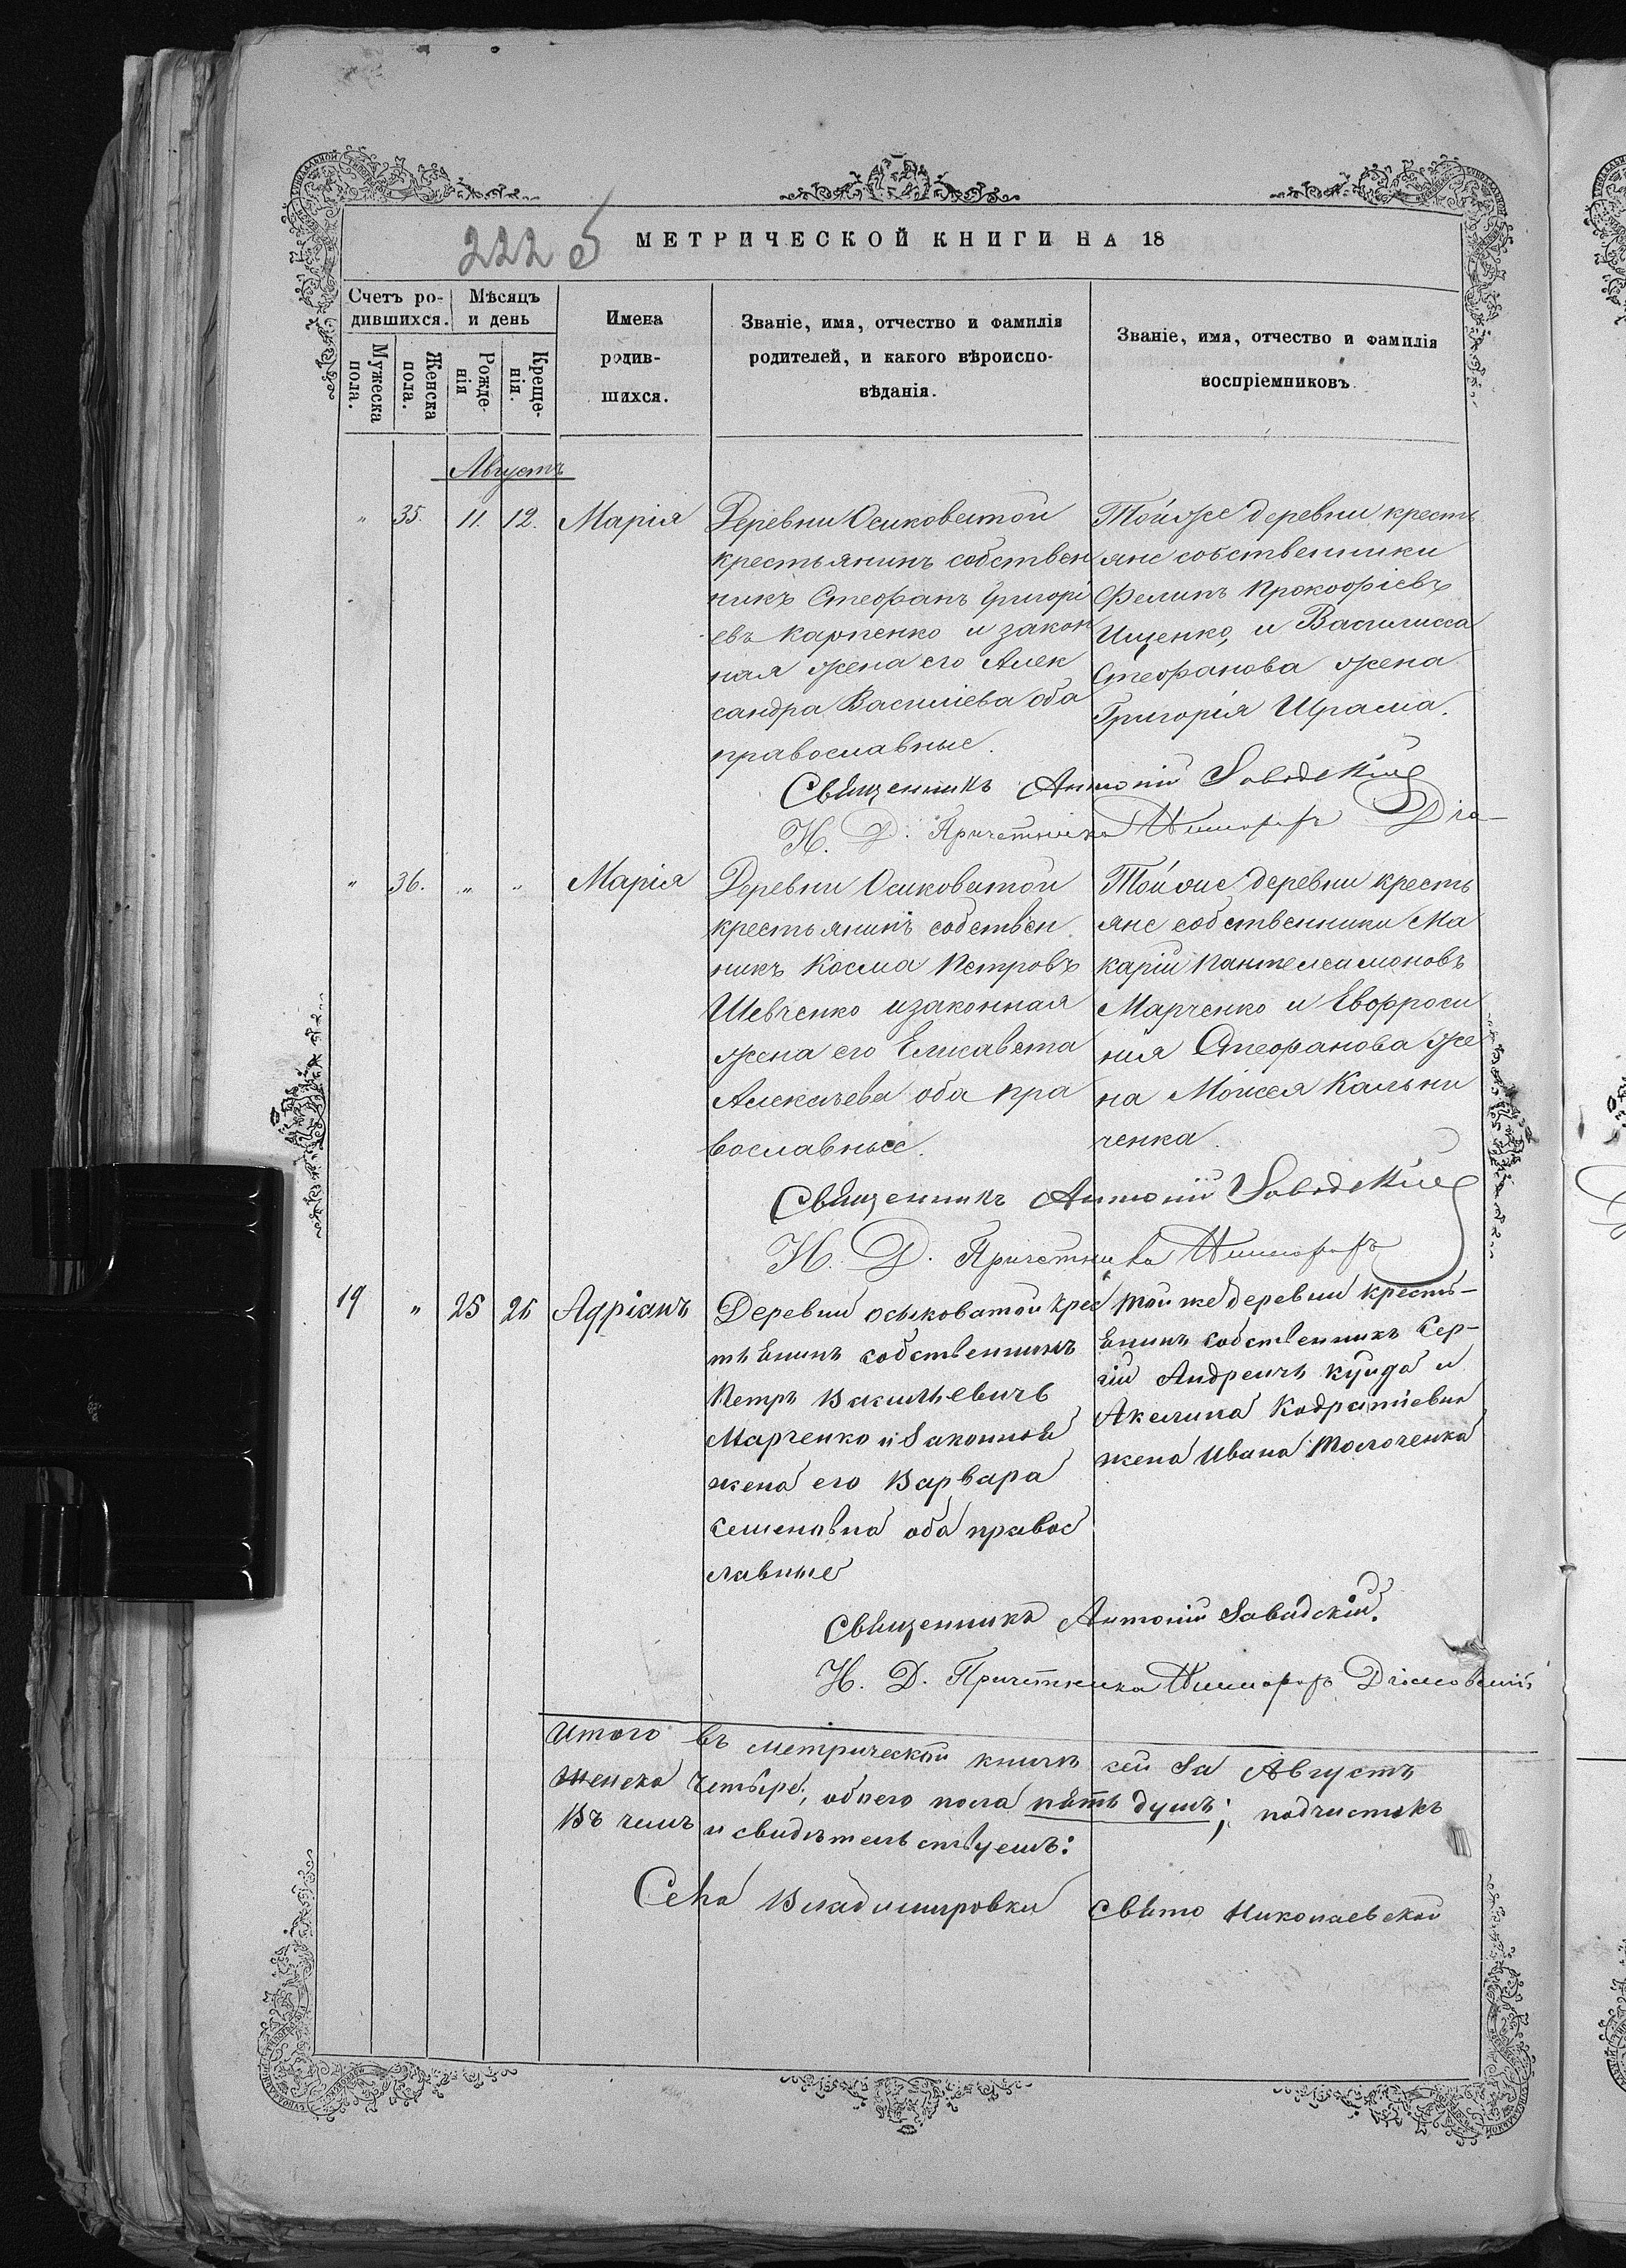 222 б
МЕТРИЧЕСКОЙ КНИГИ НА 18
Счетъ ро-
дившихся.
Мѣсяцъ
и день
Мужеска
пола.
Женска
пола.
Рожде-
нія
Креще-
нія.
Имена
родив-
шихся.
Званіе, имя, отчество и фамилія
родителей, и какого вѣроиспо-
вѣданія.
Званіе, имя, отчество и фамилія
воспріемниковъ
Августъ
" 35. 11. 12. Марія
Деревни Осиковатой
крестьянинъ собствен
никъ Стефанъ Григорі
евъ Карпенко и закон
ная жена его Алек
сандра Василіева оба
православные.
Тойже деревни кресть
яне собственники
Филипъ Прокофіевъ
Ищенко, и Василисса
Стефанова жена
Григорія Шрама.
Священникъ Антоній Завадскій
И. Д. Причетника
" 36. " " Марія
Деревни Осиковатой
крестьянинъ собствен
никъ Косма Петровъ
Шевченко и законная
жена его Елисавета
Алексѣева оба пра
вославные.
Тойже деревни кресть
яне собственники Ма
карій Пантелеимоновъ
Марченко и Евфроси
нія Стефанова же
на Моисея Кальни
ченка.
Священникъ Антоній Завадскій
И. Д. Причетника
19 " 25 26 Адріанъ
Деревни осыковатой крес
тьянинъ собственникъ
Петръ Васильевичъ
Марченко и законная
жена его Варвара
Семеновна оба правос
лавные
той же деревни кресть-
янинъ собственникъ Сер-
гій Андреичъ и
Акелина Кодратіевна
жена Ивана Толоченка
Священникъ Антоній Завадскій.
И. Д. Причетника
Итого въ метрической книгѣ сей за Августъ
Женска четыре, обоего пола пять душъ; подчистокъ
Въ чемъ и свидѣтельствуемъ:
Села Владимировки Свято Николаевской